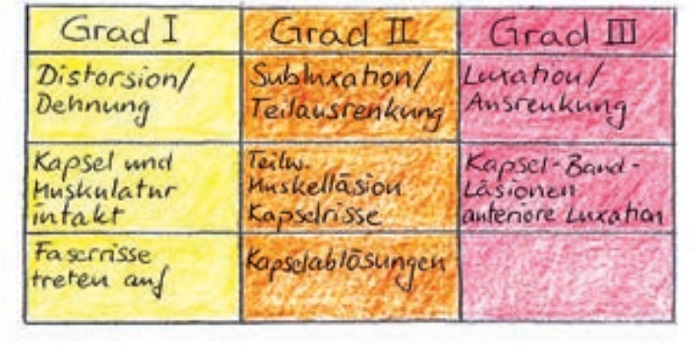 Grad I
Grad II
Grad III
Distorsion/
Dehnung
Subluxation/
Teilausrenkung
Luxation/
Ausrenkung
Kapsel und
Muskulatur
intakt
Teilw.
Muskelläsion
Kapselrisse
Kapsel-Band-
Läsionen
anteriore Luxation
Faserrisse
treten auf
Kapselablösungen